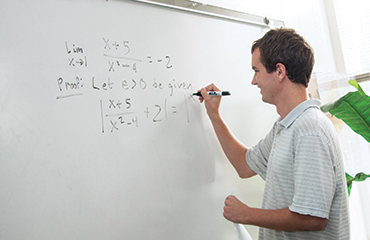 Lim x→1 x+5/x²-4 = -2
Proof: Let ε>0 be given
|x+5/x²-4 + 2| = |